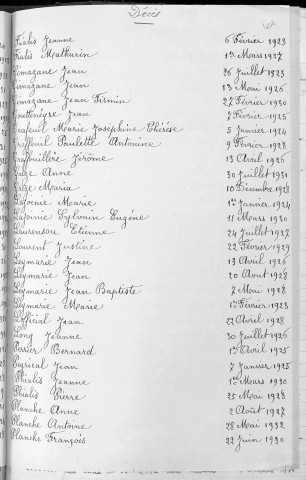 Décès
Fialis Jeanne 6 Février 1923
Fialis Mathurin 1er Mars 1927
Gimazane Jean 26 Juillet 1923
Gimazane Jean 13 Mai 1926
Gimazane Jean Firmin 27 Février 1930
Gouttenègre Jean 7 Février 1925
Graffeuil Marie Joséphine Thérèse 5 Janvier 1924
Graffeuil Paulette Antoinine 9 Février 1928
Graffouillère Jérôme 13 Avril 1926
Anne 30 Juillet 1931
Maria 10 Décembre 1928
Marie 1er Janvier 1924
Sylvain Eugène 11 Mars 1930
Laurensou Etienne 24 Juillet 1927
Laurent Justine 22 Février 1929
Leymarie Jean 13 Avril 1926
Leymarie Jean 20 Août 1928
Leymarie Jean Baptiste 7 Mai 1928
Leymarie Marie 1er Février 1923
Lofficial Jean 22 Avril 1928
Long Jeanne 30 Juillet 1926
Perrier Bernard 1er Avril 1925
Peyrical Jean 7 Janvier 1925
Phialis Jeanne 1er Mars 1930
Phialis Pierre 25 Mai 1928
Planche Anne 2 Août 1927
Planche Antoine 28 Mai 1932
Planche François 22 Juin 1930